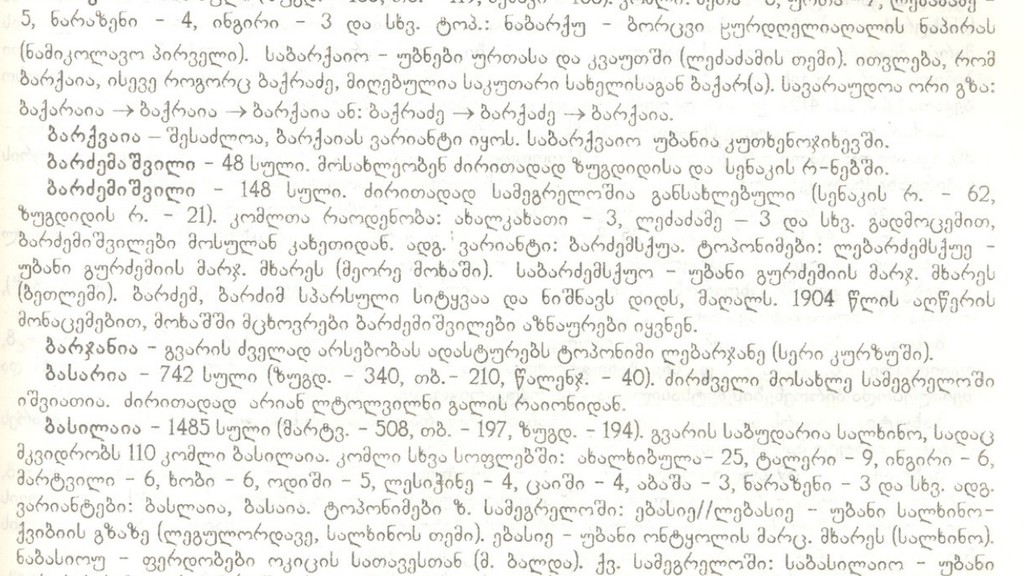 5, ნარაზენი - 4, ინგირი - 3 და სხვ. ტოპ.: ნაბარქუ - ბორცვი ჸურდღელიაღალის ნაპირას
(ნამიკოლავო პირველი). საბარქაიო - უბნები ურთასა და კვაუთში (ლეძაძამის თემი). ითვლება, რომ
ბარქაია, ისევე როგორც ბაქრაძე, მიღებულია საკუთარი სახელისაგან ბაქარ(ა). სავარაუდოა ორი გზა:
ბაქარაია → ბაქრაია → ბარქაია ან: ბაქრაძე → ბარქაძე → ბარქაია.
ბარქვაია – შესაძლოა, ბარქაიას ვარიანტი იყოს. საბარქვაიო უბანია კუთხენოჯიხევში.
ბარძემაშვილი - 48 სული. მოსახლეობენ ძირითადად ზუგდიდისა და სენაკის რ-ნებში.
ბარძემიშვილი - 148 სული. ძირითადად სამეგრელოშია განსახლებული (სენაკის რ. - 62,
ზუგდიდის რ. - 21). კომლთა რაოდენობა: ახალკახათი - 3, ლეძაძამე – 3 და სხვ. გადმოცემით,
ბარძემიშვილები მოსულან კახეთიდან. ადგ. ვარიანტი: ბარძემსქუა. ტოპონიმები: ლებარძემსქუე -
უბანი გურძემიის მარჯ. მხარეს (მეორე მოხაში). საბარძემსქუო - უბანი გურძემიის მარჯ. მხარეს
(ბეთლემი). ბარძემ, ბარძიმ სპარსული სიტყვაა და ნიშნავს დიდს, მაღალს. 1904 წლის აღწერის
მონაცემებით, მოხაშში მცხოვრები ბარძემიშვილები აზნაურები იყვნენ.
ბარჯანია - გვარის ძველად არსებობას ადასტურებს ტოპონიმი ლებარჯანე (სერი კურზუში).
ბასარია - 742 სული (ზუგდ. - 340, თბ.- 210, წალენჯ. - 40). ძირძველი მოსახლე სამეგრელოში
იშვიათია. ძირითადად არიან ლტოლვილნი გალის რაიონიდან.
ბასილაია - 1485 სული (მარტვ. - 508, თბ. - 197, ზუგდ. - 194). გვარის საბუდარია სალხინო, სადაც
მკვიდრობს 110 კომლი ბასილაია. კომლი სხვა სოფლებში: ახალხიბულა- 25, ტალერი - 9, ინგირი - 6,
მარტვილი - 6, ხობი - 6, ოდიში - 5, ლესიჭინე - 4, ცაიში - 4, აბაშა - 3, ნარაზენი - 3 და სხვ. ადგ.
ვარიანტები: ბასლაია, ბასაია. ტოპონიმები ზ. სამეგრელოში: ებასიე//ლებასიე - უბანი სალხინო-
ქვიბიის გზაზე (ლეგულორდავე, სალხინოს თემი). ებასიე - უბანი ონტყოლის მარც. მხარეს (სალხინო).
ნაბასიოუ - ფერდობები ოკიცის სათავესთან (მ. ბალდა). ქვ. სამეგრელოში: საბასილაიო - უბანი